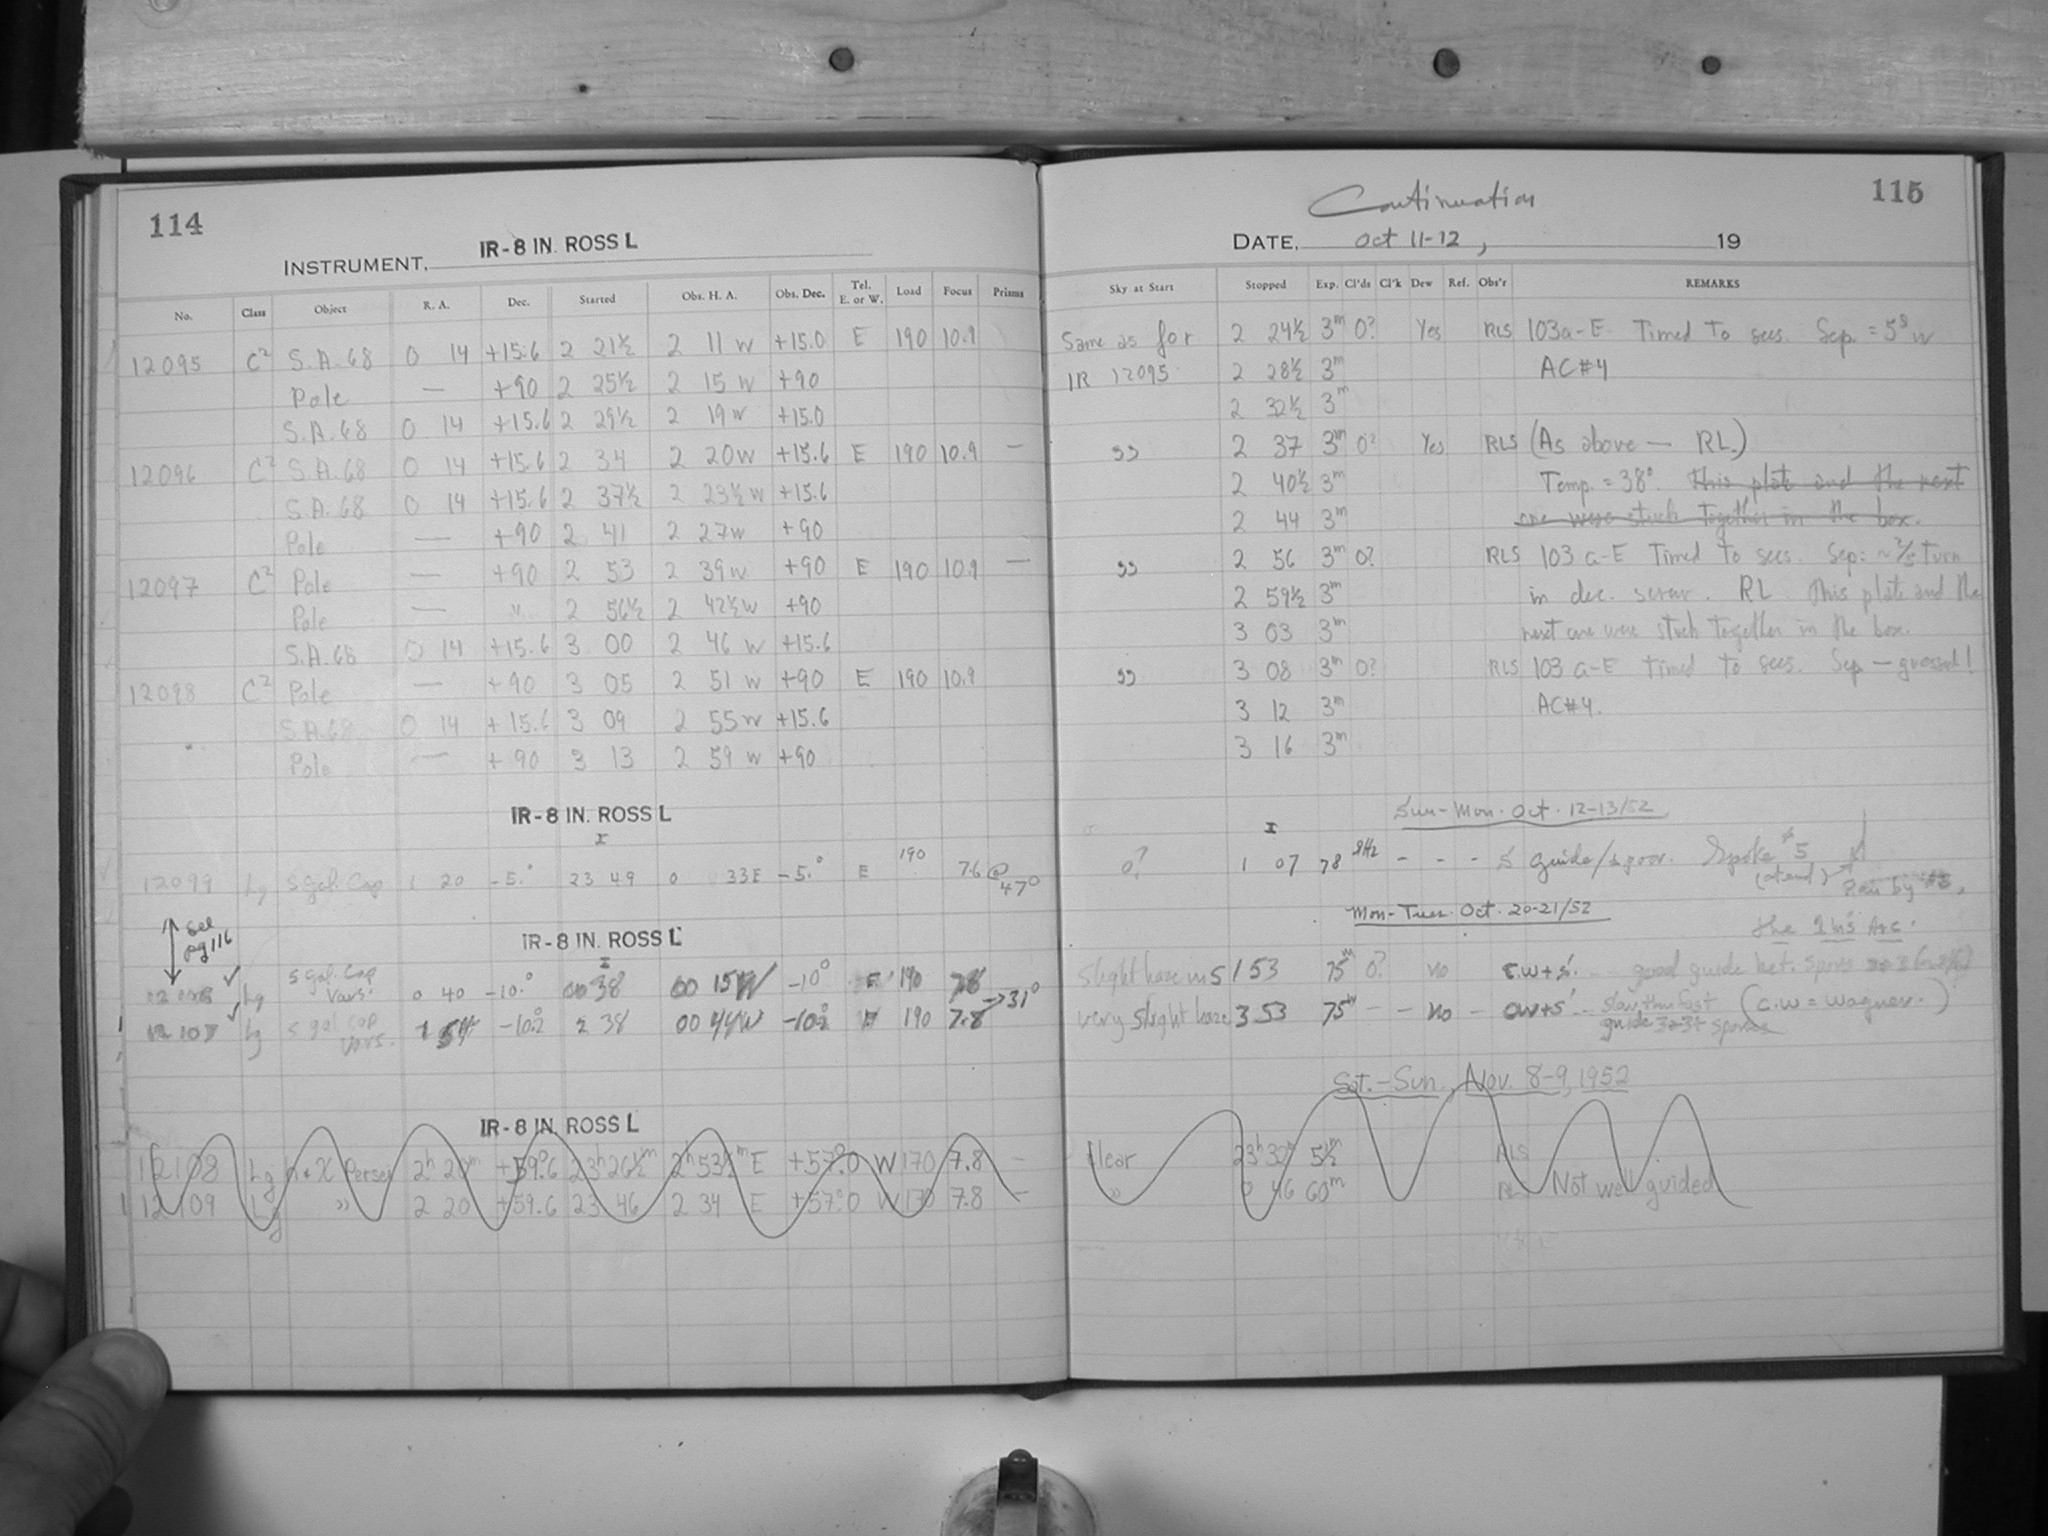 114
INSTRUMENT, IR-8 IN. ROSS L
No. Class Object R. A. Dec. Started Obs. H. A. Obs. Dec. Tel. E. or W. Load Focus Prisms
12095 C² S.A.68 0 14 +15.6 2 21½ 2 11 W +15.0 E 190 10.9
Pole — +90 2 25½ 2 15 W +90
S.A.68 0 14 +15.6 2 29½ 2 19 W +15.0
12096 C² S.A.68 0 14 +15.6 2 34 2 20W +15.6 E 190 10.9 —
S.A.68 0 14 +15.6 2 37½ 2 23½ W +15.6
Pole — +90 2 41 2 27W +90
12097 C² Pole — +90 2 53 2 39W +90 E 190 10.9 —
Pole — " 2 56½ 2 42½W +90
S.A.68 0 14 +15.6 3 00 2 46 W +15.6
12098 C² Pole — +90 3 05 2 51 W +90 E 190 10.9
S.A.68 0 14 +15.6 3 09 2 55W +15.6
Pole — +90 3 13 2 59 W +90
IR-8 IN. ROSS L
I
12099 Lg S gal. Cap 1 20 -5.° 23 49 0 33E -5.° E 190 7.6 @ 47°
see pg 116
IR-8 IN. ROSS L
I
Lg S gal. Cap Vars. 0 40 -10.° 00 38 00 15W -10° E 190 7.8 →31°
12 107 Lg S gal cap vars. 1 54 -10.2° 2 38 00 44W -10.2° 190 7.8
IR-8 IN. ROSS L
12108 Lg h+X Persei 2ʰ 20ᵐ +59.°6 23ʰ26½ᵐ 2ʰ53½ᵐE +57.°0 W 170 7.8 —
12109 Lg " 2 20 +59.6 23 46 2 34 E +57.°0 W 170 7.8 —
Continuation
115
DATE, Oct 11-12, 19
Sky at Start Stopped Exp. Cl'ds Cl'k Dew Ref. Obs'r REMARKS
Same as for 2 24½ 3ᵐ 0? Yes RLS 103a-E Timed to secs. Sep. = 5ˢ W
IR 12095 2 28½ 3ᵐ AC#4
2 32½ 3ᵐ
" 2 37 3ᵐ 0? Yes RLS (As above — RL.)
2 40½ 3ᵐ Temp. = 38°. This plate and the next
2 44 3ᵐ one were stuck together in the box.
" 2 56 3ᵐ 0? RLS 103 a-E Timed to secs. Sep: ~⅖ turn
2 59½ 3ᵐ in dec. screw. RL This plate and the
3 03 3ᵐ next one were stuck together in the box.
" 3 08 3ᵐ 0? RLS 103 a-E Timed to secs. Sep — guessed!
3 12 3ᵐ AC#4.
3 16 3ᵐ
Sun-Mon. Oct. 12-13/52
I
0? 1 07 78 - - - S guide/spoor. Spoke #5 (at end)
Mon-Tues. Oct. 20-21/52
the 2 hs Arc.
slight haze in S 1 53 75ᵐ 0? no C.W+S. - good guide bet.
very slight haze 3 53 75ᵐ - - no - CW+S - Slow then fast (C.W = Wagner.)
guide
Sat.-Sun., Nov. 8-9, 1952
Clear 23ʰ32ᵐ 5½ᵐ RLS
" 0 46 60ᵐ Not well guided